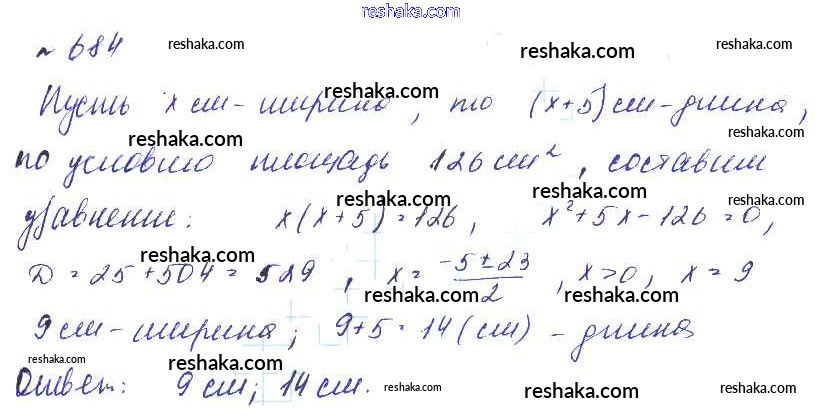 reshaka.com
№ 684 reshaka.com reshaka.com reshaka.com
reshaka.com
Пусть x см - ширина, то (x+5) см - длина,
reshaka.com reshaka.com reshaka.com
по условию площадь 126 см², составим
reshaka.com reshaka.com reshaka.com
уравнение: x(x+5)=126, x²+5x-126=0,
reshaka.com reshaka.com reshaka.com
D = 25+504 = 529, x = (-5±23)/2, x>0, x=9
reshaka.com reshaka.com reshaka.com
9 см - ширина; 9+5=14 (см) - длина
reshaka.com reshaka.com reshaka.com
Ответ: 9 см; 14 см. reshaka.com reshaka.com reshaka.com